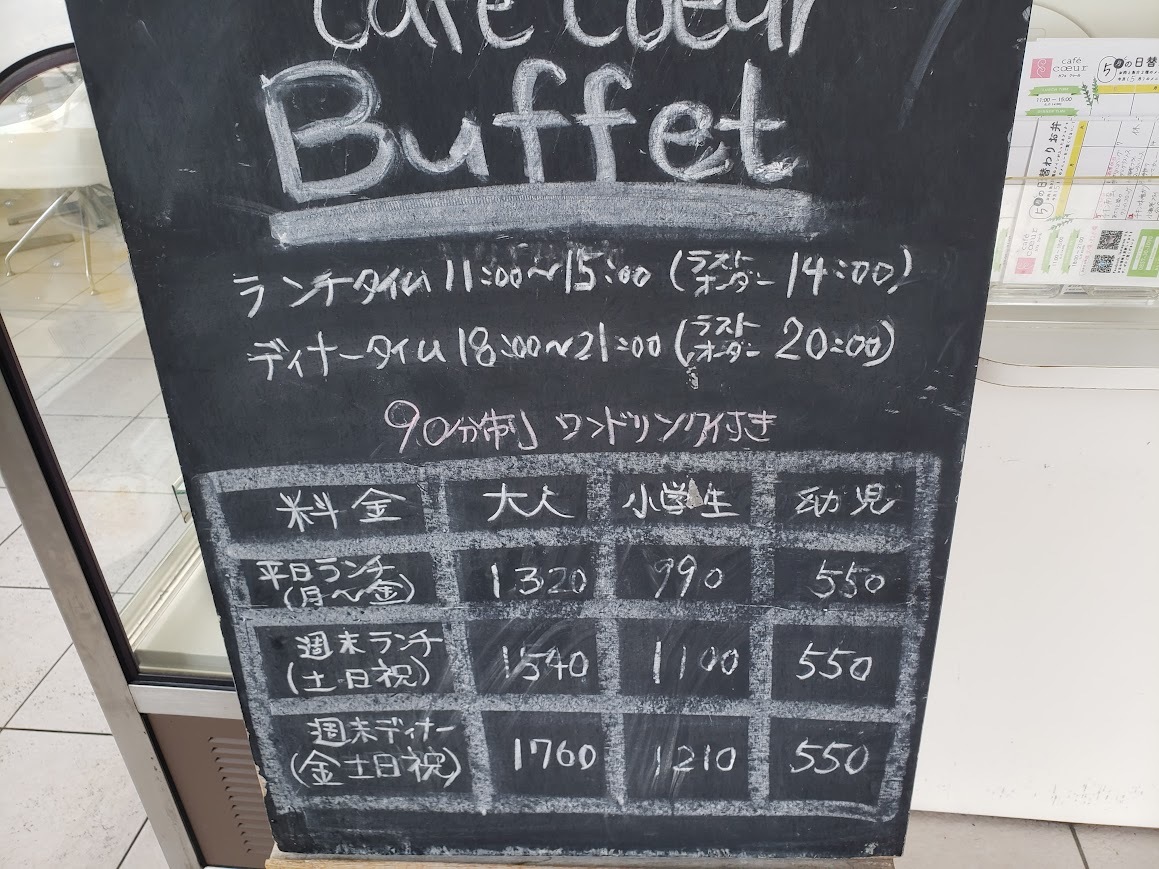 Café Coeur
Buffet
ランチタイム 11:00〜15:00 (ラストオーダー 14:00)
ディナータイム 18:00〜21:00 (ラストオーダー 20:00)
90分制 ワンドリンク付き
料金 大人 小学生 幼児
平日ランチ (月〜金) 1320 990 550
週末ランチ (土日祝) 1540 1100 550
週末ディナー (金土日祝) 1760 1210 550
café
cœur
5月の日替
11:00 〜 15:00
5月の日替わりお弁
café
cœur